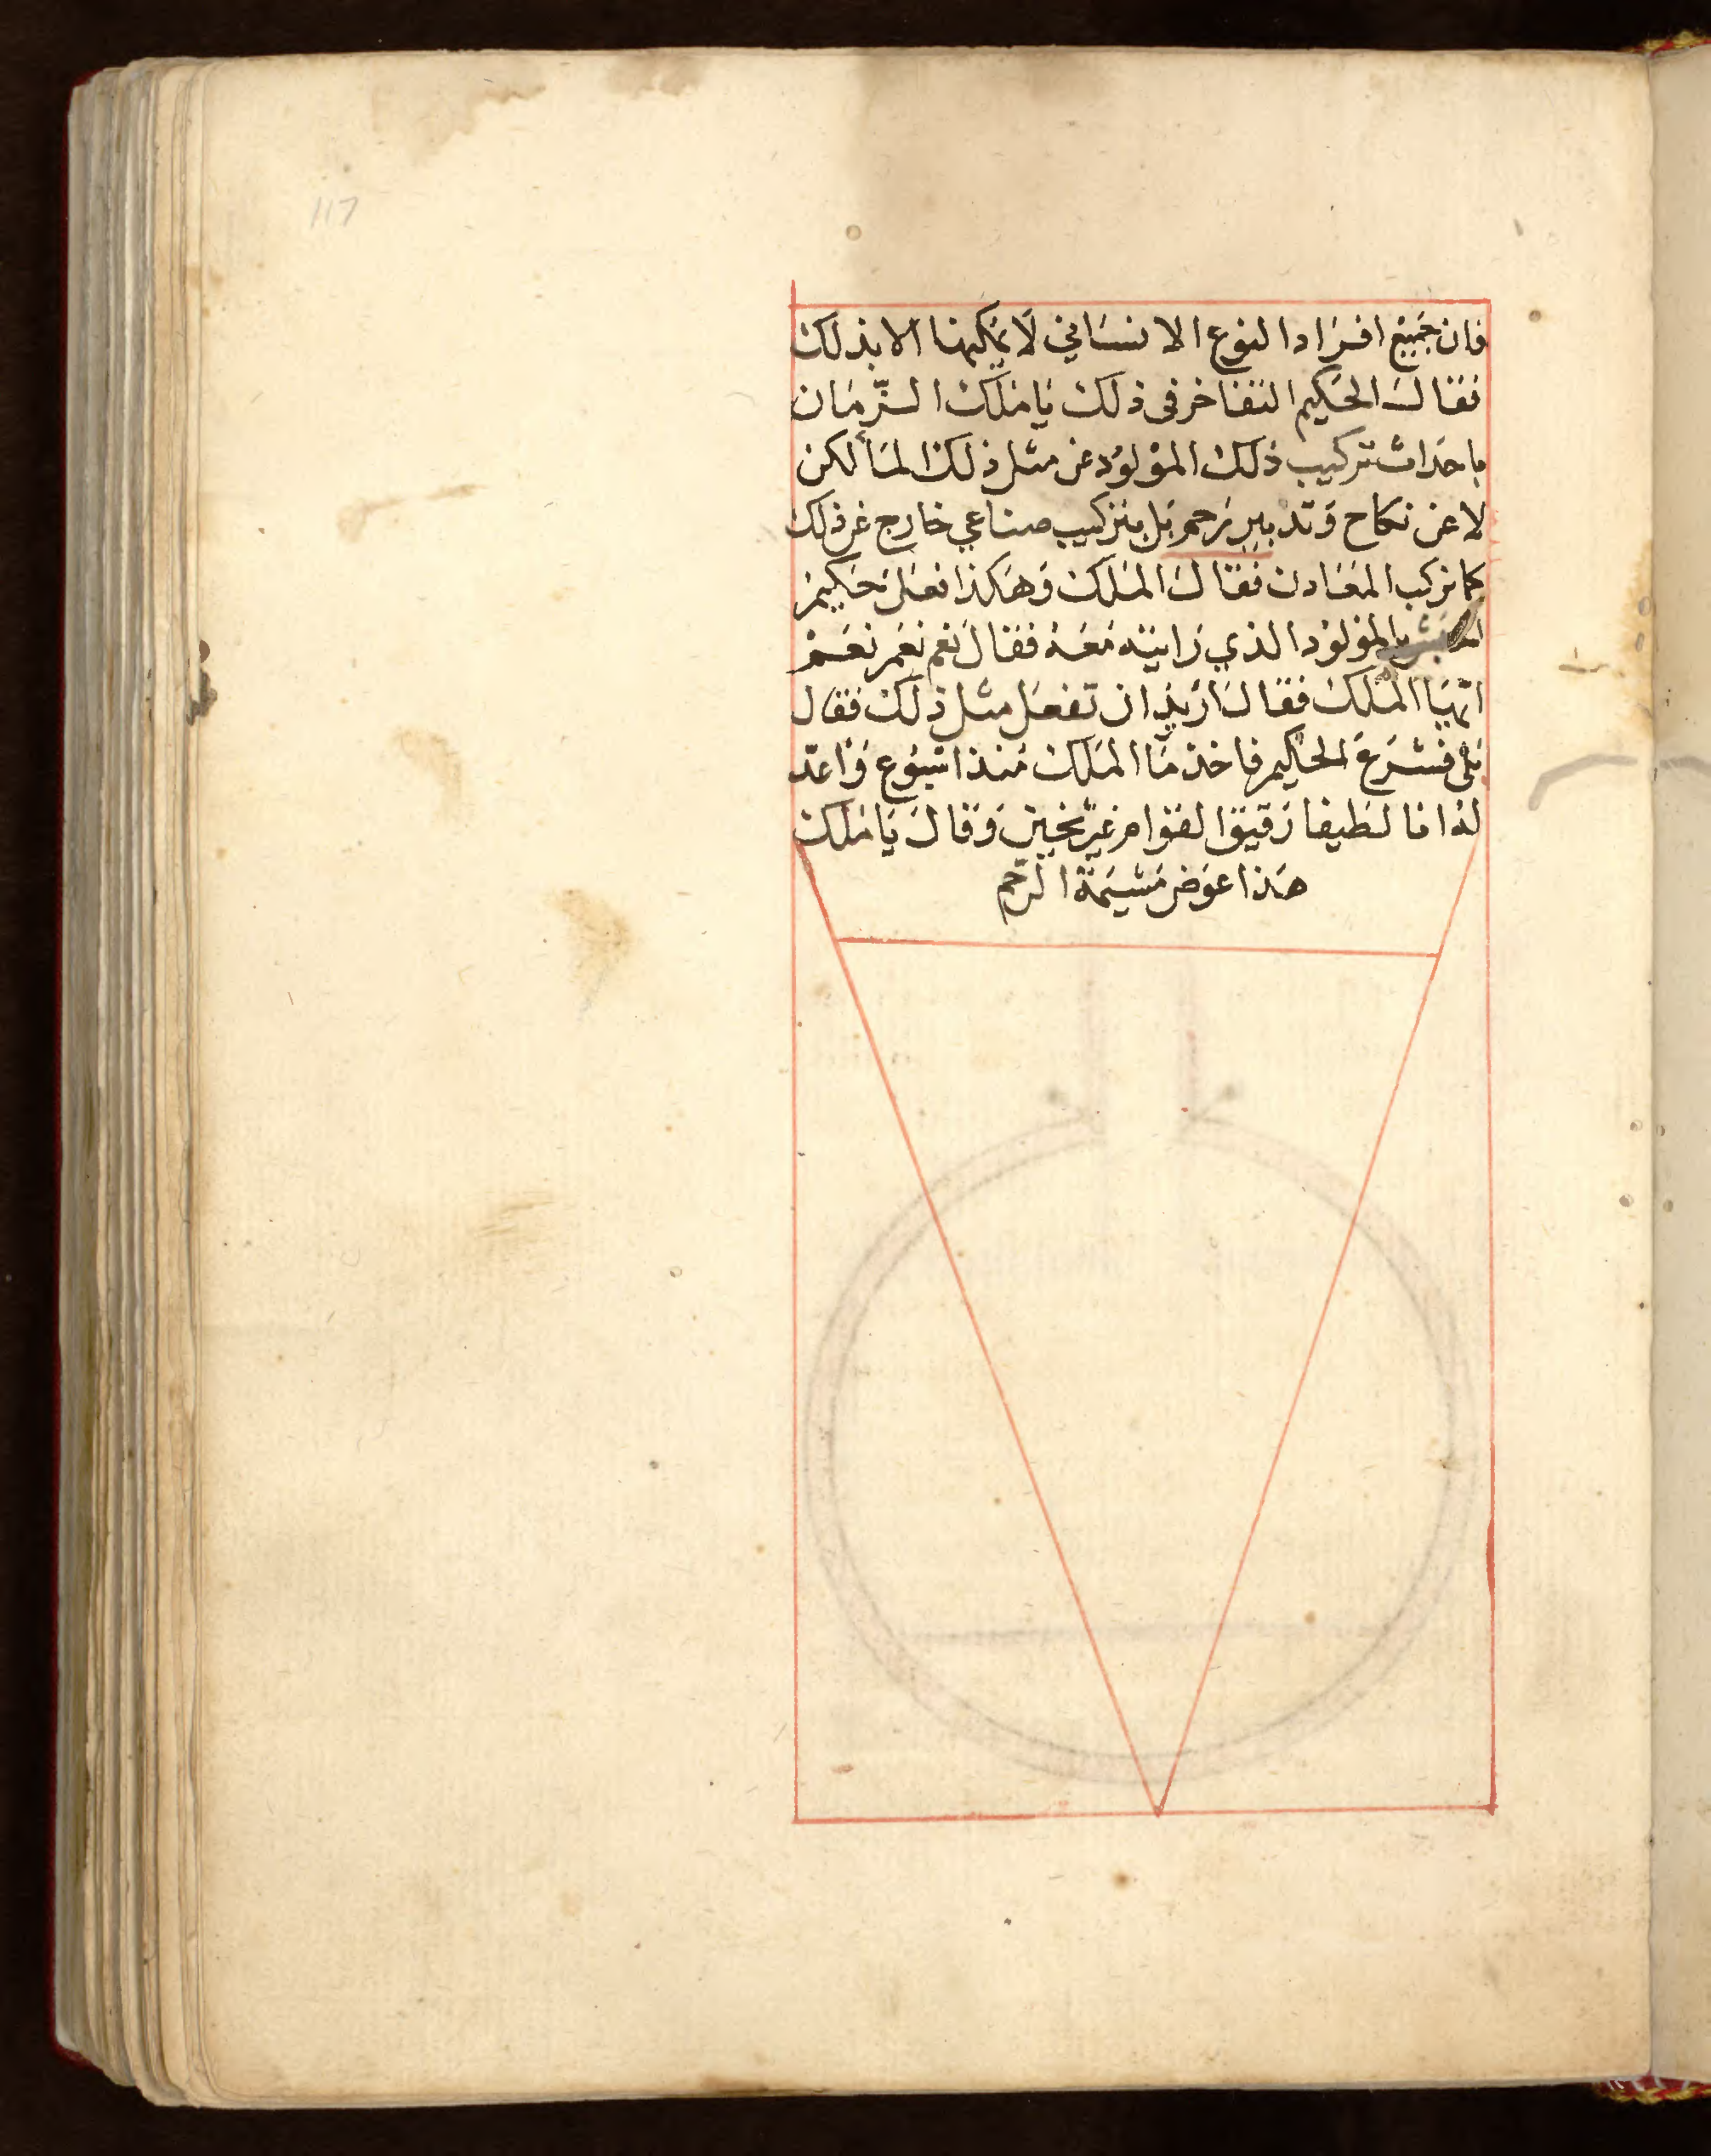 117
فان جَمِيْع افرَاد النوع الانسَاني لَا يمكنها الا بذلك
فقال الحَكيم التفاخر في ذلك يَا مَلك الزّمَان
باحدَاث تركيب ذلك المَوْلوْد عَن مثل ذلك المَاْ لكن
لا عن نكاح وَتدبير رَحِم بَل بتركيب صناعي خارج عَن ذلك
كما نركب المعَادن فقال المَلك وَهَكذا فعَل حَكيم
بالموْلوْد الذي رَايته مَعَه فقال نعَم نعَم نعَمْ
ايّهَا المَلك فقال اَرَيْد ان تفعَل مثل ذلك فقال
بَلى فشرَعَ الحَكيم فاخذ مَا المَلك مُنذ اسْبُوع وَاعَدّ
لهُ انا لطيفا رَقيق القوَام غير ثخين وَقال يَا مَلك
هَذا عوَض مَشيمَة الرّحم